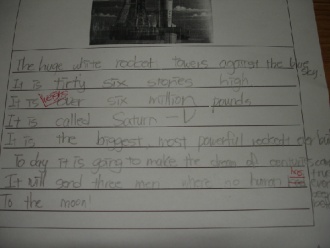 The huge white rocket towers against the blue sky
It is tirty six stories high
It is over six million pounds
It is called Saturn - V
It is the biggest, most powerful rocket
To day it is going to make the
It will send three men where no human has
To the moon!